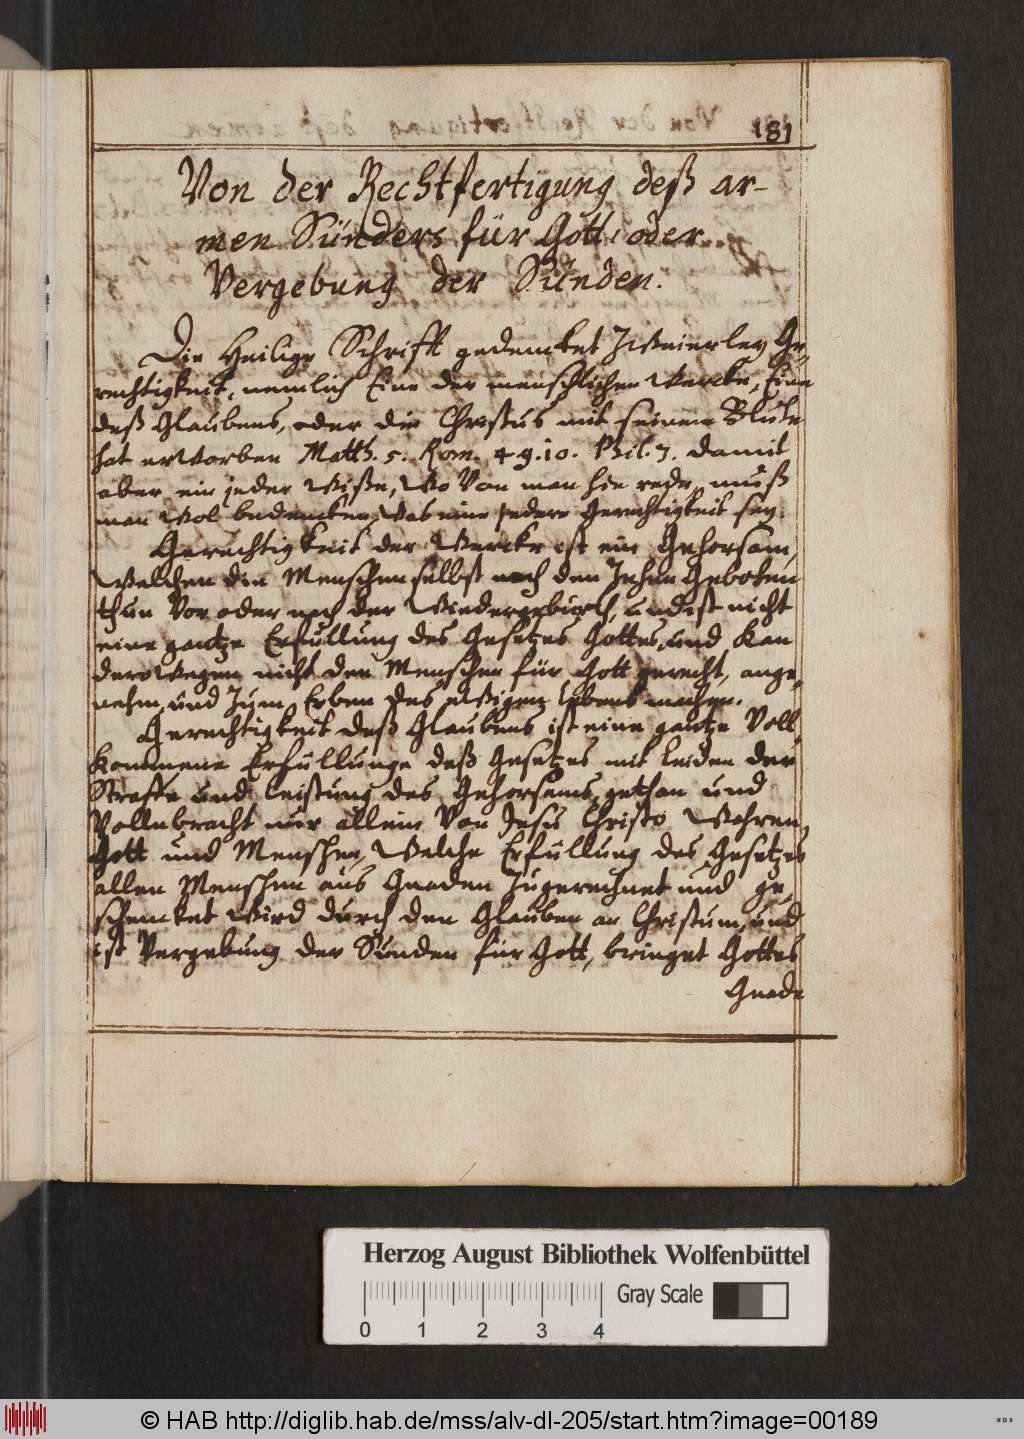 181
Von der Rechtfertigung deß ar-
men Sünders für Gott, oder
Vergebung der Sünden.
Die Heilige Schrifft gedencket Zweierley Ge-
rechtigkeit, nemlich Eine der menschlichen Wercke, Eine
deß Glaubens, oder die Christus mit seinem Blute
hat erworben Matth. 5. Rom. 4. 9. 10. Phil. 3. damit
aber ein jeder Wiße, Wo Von man hie rede, muß
man Wol bedencken, Was eine jedere Gerechtigkeit sey.
Gerechtigkeit der Wercke ist ein Gehorsam,
Welchen die Menschen selbst nach den Zehen Geboten
thun Vor oder nach der Wiedergeburth, und ist nicht
eine gantze Erfüllung des Gesetzes Gottes, und kan
derowegen nicht den Menschen für Gott gerecht, ange-
nehm, und Zum Erben des ewigen lebens machen.
Gerechtigkeit deß Glaubens ist eine gantze Voll-
kommene Erfüllunge deß Gesetzes mit leiden der
Straffe und leistung des Gehorsams, gethan und
Vollnbracht nur allein Von Jesu Christo Wahren
Gott und Menschen, Welche Erfüllung des Gesetzes
allen Menschen aus Gnaden Zugerechnet und ge-
schencket Wird durch den Glauben an Christum, und
ist Vergebung der Sünden für Gott, bringet Gottes
Gnade
Herzog August Bibliothek Wolfenbüttel
Gray Scale
0 1 2 3 4
© HAB http://diglib.hab.de/mss/alv-dl-205/start.htm?image=00189